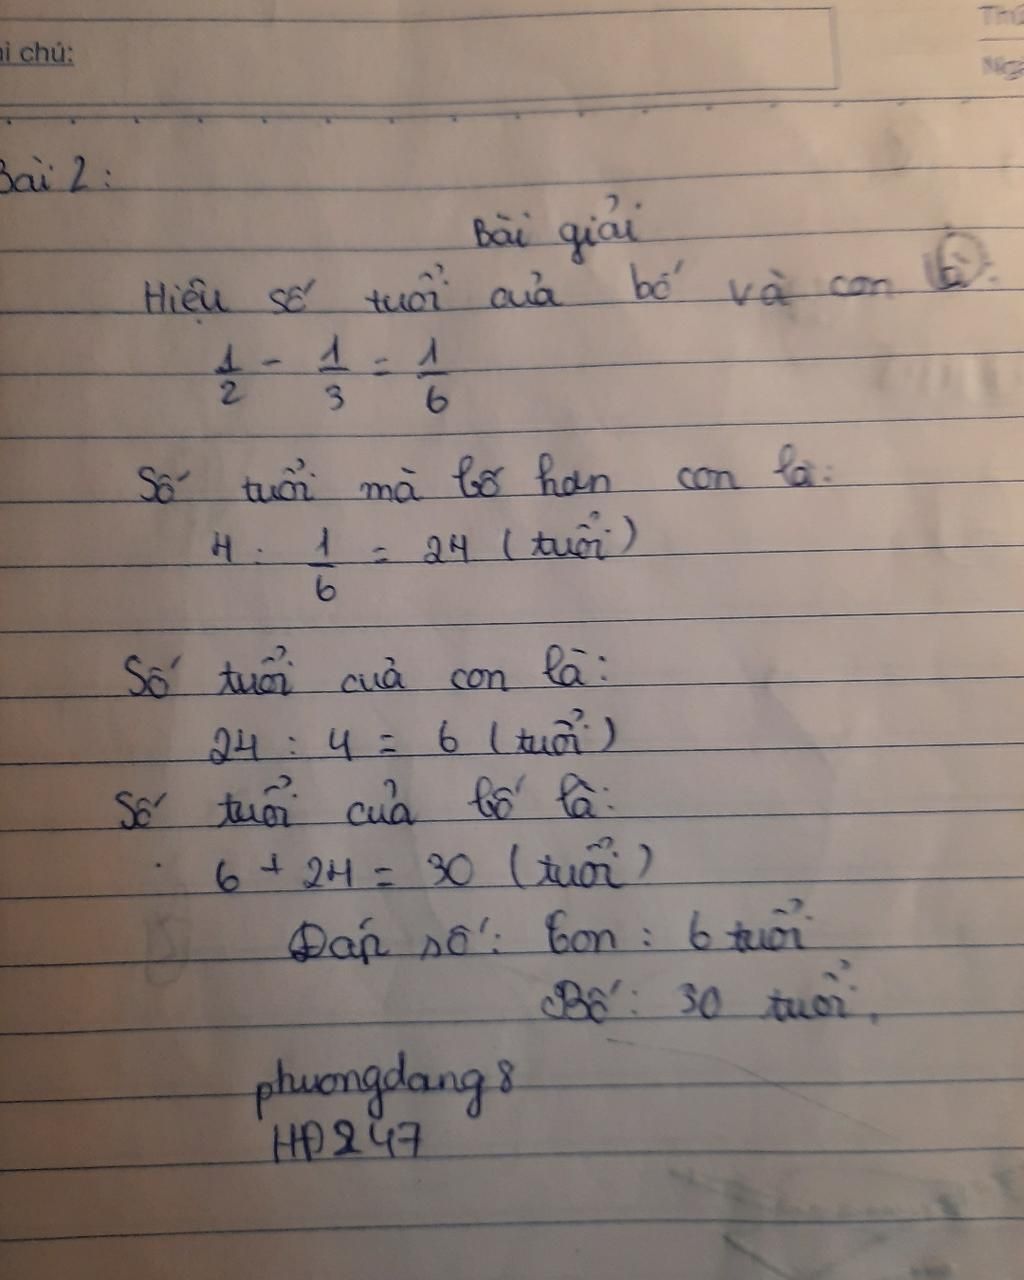 i chú:
Thứ
Ngà
Bài 2:
Bài giải
Hiệu số tuổi của bố và con là:
1/2 - 1/3 = 1/6
Số tuổi mà bố hơn con là:
4 : 1/6 = 24 (tuổi)
Số tuổi của con là:
24 : 4 = 6 (tuổi)
Số tuổi của bố là:
6 + 24 = 30 (tuổi)
Đáp số: Con : 6 tuổi
Bố: 30 tuổi.
phuongdang8
HĐ247